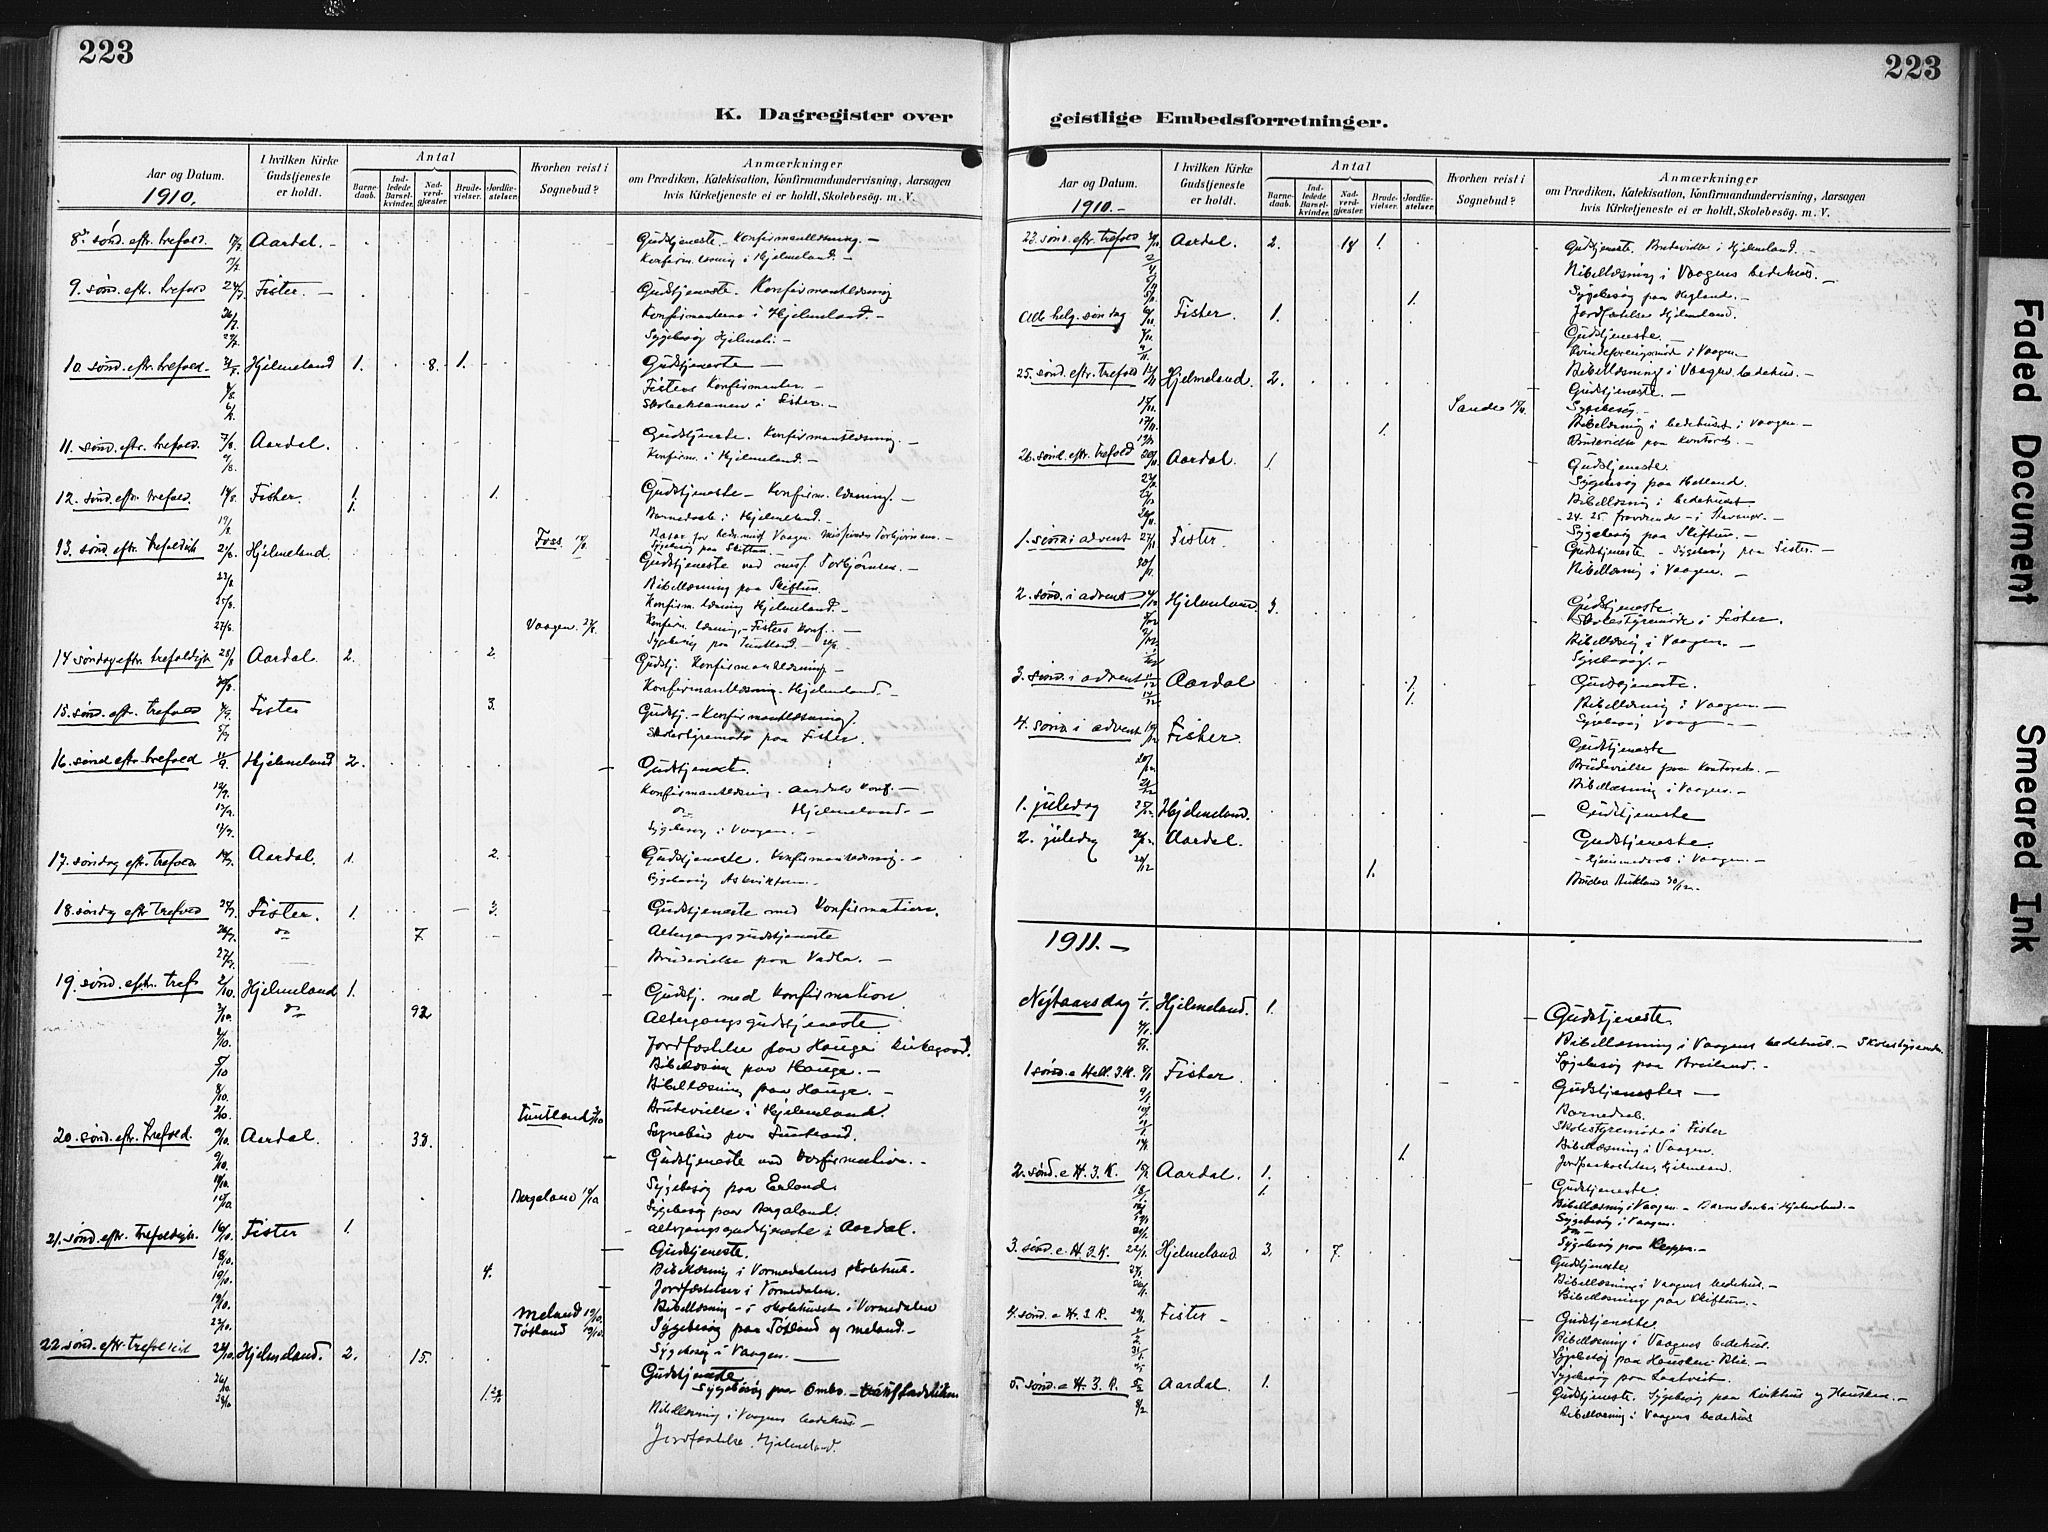 223
K. Dagregister over
Aar og Datum.
1910.
I hvilken Kirke Gudstjeneste er holdt.
Antal
Barnedaab.
Indledede Barselkvinder.
Nadverdgjæster.
Brudevielser.
Jordfæstelser.
Hvorhen reist i Sognebud?
Anmærkninger
om Prædiken, Katekisation, Konfirmandundervisning, Aarsagen
hvis Kirketjeneste ei er holdt, Skolebesøg. m. V.
8. sønd. eftr. trefold. 17/7 Aardal. Gudstjeneste. Konfirmantlæsning.
Konfirm. læsning i Hjelmeland.
9. sønd. eftr. trefold 24/7 Fister. Gudstjeneste. Konfirmantlæsning
26/7 Konfirmanterne i Hjelmeland.
Sygebesøg
10. sønd. eftr. trefold. 31/7 Hjelmeland 1. 8. 1. Gudstjeneste
Fisters Konfirmanter.
Skoleeksamen i Fister.
11. sønd. eftr. trefold. 7/8 Aardal. Gudstjeneste. Konfirmantlæsning.
Konfirm. i Hjelmeland.
12. sønd. eftr. trefold. 14/8 Fister. 1. 1. Gudstjeneste - Konfirm. læsning.
1. Barnedaab i Hjelmeland.
Foss
13. sønd. eftr. trefoldigh 21/8 Hjelmeland Gudstjeneste ved miss. Torbjørnsen.
23/8 Bibellæsning paa Skiftun.
25/8 Konfirm. læsning Hjelmeland.
27/8 Vaagen 27/8 Konfirm. læsning. Fisters Konf.
Sygebesøg paa Tuntland
14 søndag eftr. trefoldigh 28/8 Aardal 2. 2. Gudstj. Konfirmantlæsning
30/8 Konfirmantlæsning. Hjelmeland.
15. sønd. eftr. trefold 4/9 Fister 3. Gudstj. - Konfirmantlæsning.
Skolestyremøde paa Fister.
16. sønd eftr. trefold 11/9 Hjelmeland 2. Gudstjeneste.
Konfirmantlæsning. Aardals Konf.
do Hjelmeland.
Sygebesøg i Vaagen.
17. søndag eftr. trefold 18/9 Aardal. 1. 2. Gudstjeneste. Konfirmantlæsning.
Sygebesøg Askvik
18. søndag eftr. trefold 25/9 Fister. 1. 3. Gudstjeneste med Konfirmation.
26/9 do 7. Altergangsgudstjeneste
27/9 Brudevielse paa Vadla.
19. sønd. eftr. tref 2/10 Hjelmeland 1. Gudstj. med Konfirmation
3/10 do 92 Altergangsgudstjeneste.
Jordfæstelse paa Hauge kirkegaard.
5/10 Bibellæsning paa Hauge.
Bibellæsning paa Hauge.
8/10 Brudevielse i Hjelmeland.
Tuntland
20. sønd. eftr. trefold. 9/10 Aardal. 38. Sognebud paa Tuntland.
9/10 Gudstjeneste med Konfirmation.
Sygebesøg paa Erland.
Bergeland Sygebesøg paa Bergeland.
Altergangsgudstjeneste i Aardal.
21. sønd. eftr. trefoldigh. 16/10 Fister 1. Gudstjeneste.
18/10 4. Bibellæsning i Vormedalens skolehus.
19/10 Jordfæstelser i Vormedalen.
19/10 Meland 19/10. Bibellæsning i skolehuset i Vormedalen
22/10 Tøtland 19/10. Sygebesøg paa Tøtland og Meland.
Sygebesøg i Vaagen.
22. sønd. eftr. trefoldigh 23/10 Hjelmeland. 2. 15. Gudstjeneste
26/10 Sygebesøg paa Ombo.
Bibellæsning i Vaagens bedehus
Jordfæstelse, Hjelmeland.
223
geistlige Embedsforretninger.
Aar og Datum.
1910.
I hvilken Kirke Gudstjeneste er holdt.
Antal
Barnedaab.
Indledede Barselkvinder.
Nadverdgjæster.
Brudevielser.
Jordfæstelser.
Hvorhen reist i Sognebud?
Anmærkninger
om Prædiken, Katekisation, Konfirmandundervisning, Aarsagen
hvis Kirketjeneste ei er holdt, Skolebesøg. m. V.
23. sønd. eftr. trefold 30/10 Aardal. 2. 18 1. Gudstjeneste. Brudevielse i Hjelmeland.
Bibellæsning i Vaagens bedehus.
Sygebesøg paa Hegland.
1. Jordfæstelse Hjelmeland.
Alle helg. søndag 6/11 Fister. 1. Gudstjeneste.
Kvindeforeningsmøde i Vaagen.
Bibellæsning i Vaagen bedehus.
25. sønd. eftr. trefold 13/11 Hjelmeland. 2. Gudstjeneste.
Sandes Sygebesøg.
17/11 Bibellæsning i bedehuset i Vaagen.
1. Brudevielse paa Kontoret.
26. sønd. eftr. trefold 20/11 Aardal. 1. Gudstjeneste.
Sygebesøg paa Hetland.
Bibellæsning i bedehuset.
24. 25. fraværende i Stavanger.
Sygebesøg paa Skiftun.
1. sønd i advent 27/11 Fister. Gudstjeneste - Sygebesøg paa Fister.
Bibellæsning i Vaagen.
2. sønd. i advent 4/12 Hjelmeland 3. Gudstjeneste.
Skolestyremøde i Fister.
Bibellæsning i Vaagen.
Sygebesøg.
3. sønd. i advent 11/12 Aardal 1. Gudstjeneste.
1. Bibellæsning i Vaagen.
Sygebesøg Vaagen
4. sønd i advent 18/12 Fister. Gudstjeneste
Brudevielse paa Kontoret.
Bibellæsning i Vaagen.
1. juledag 25/12 Hjelmeland. Gudstjeneste
2. juledag 26/12 Aardal. Gudstjeneste.
Hjemmedaab i Vaagen.
1. Brudev. Birkland 30/12
1911.
Nytaarsdag 1/1 Hjelmeland. 1. Gudstjeneste.
Bibellæsning i Vaagens bedehus.
Sygebesøg paa Breiland.
1 sønd. e Hell. 3. K. 8/1 Fister. Gudstjeneste
Barnedaab.
Skolestyremøde i Fister
Bibellæsning i Vaagen.
1. Jordpaakastelse, Hjelmeland.
2. sønd e H. 3. K. 15/1 Aardal. 1. Gudstjeneste.
1. Bibellæsning i Vaagen. - Barnedaab i Hjelmeland.
Sygebesøg i Vaagen.
Sygebesøg paa Kleppa.
3. sønd. e. H. 3. K. 22/1 Hjelmeland 3. 7. Gudstjeneste
Bibellæsning i Vaagens bedehus.
Bibellæsning paa Skiftun.
4. sønd. e H. 3 K. 29/1 Fister Gudstjeneste.
Bibellæsning i Vaagens bedehus.
5. sønd. e H. 3. K. 5/2 Aardal. 1. Gudstjeneste. Sygebesøg paa
8/2 Bibellæsning i Vaagens bedehus
Faded Document
Smeared Ink